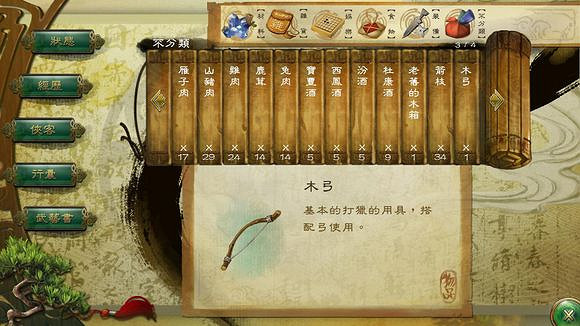 【材料】
【雜貨】
【娛樂】
【食物】
【裝備】
【不分類】
3 / 4
不分類
狀態
經歷
俠客
行囊
武藝書
雁子肉 x 17
山豬肉 x 29
雞肉 x 24
鹿茸 x 14
兔肉 x 14
寶豐酒 x 5
西鳳酒 x 5
汾酒 x 5
杜康酒 x 9
老舊的木箱 x 1
箭枝 x 34
木弓 x 1
木弓
基本的打獵的用具，搭
配弓使用。
物品